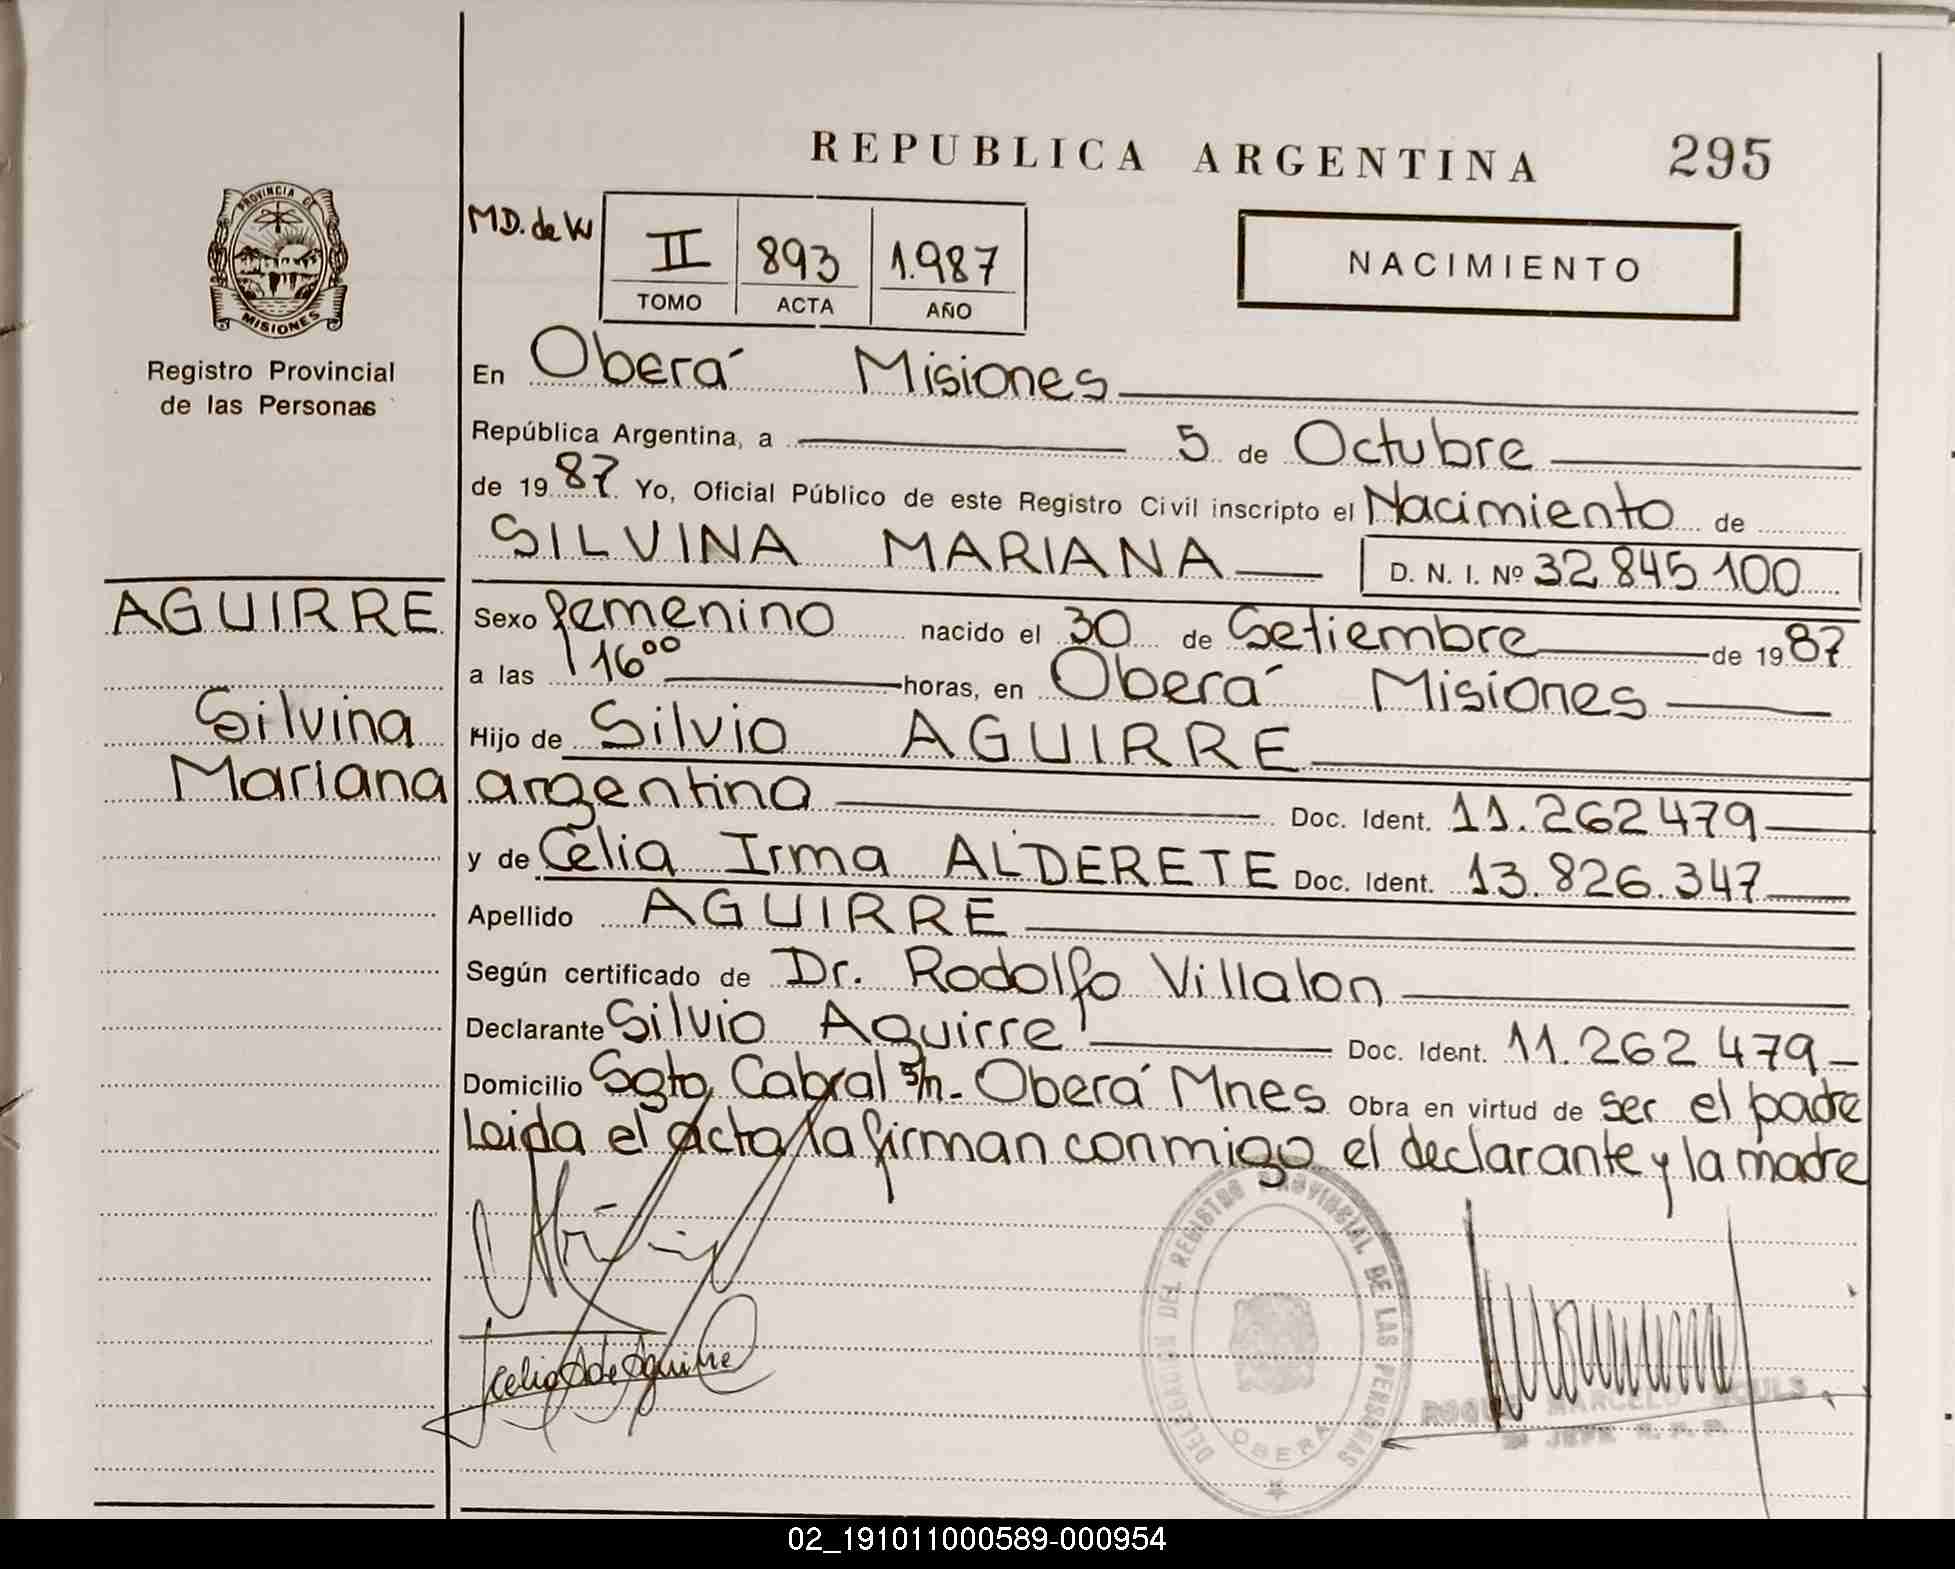 REPUBLICA ARGENTINA 295
PROVINCIA DE
MISIONES
Registro Provincial
de las Personas
MD. de W
II 893 1.987
TOMO ACTA AÑO
NACIMIENTO
En Oberá Misiones
República Argentina, a 5 de Octubre
de 1987 Yo, Oficial Público de este Registro Civil inscripto el Nacimiento de
SILVINA MARIANA D. N. I. Nº 32.845.100
AGUIRRE
Silvina
Mariana
Sexo femenino nacido el 30 de Setiembre de 1987
a las 16⁰⁰ horas, en Oberá Misiones
Hijo de Silvio AGUIRRE
argentino Doc. Ident. 11.262.479
y de Celia Irma ALDERETE Doc. Ident. 13.826.347
Apellido AGUIRRE
Según certificado de Dr. Rodolfo Villalon
Declarante Silvio Aguirre Doc. Ident. 11.262.479
Domicilio Sgto Cabral s/n - Oberá Mnes Obra en virtud de ser el padre
Leida el acta la firman conmigo el declarante y la madre
DELEGACION DEL REGISTRO PROVINCIAL DE LAS PERSONAS
OBERA
Celia A de Aguirre
MARCELO
JEFE R. P. P.
02_191011000589-000954